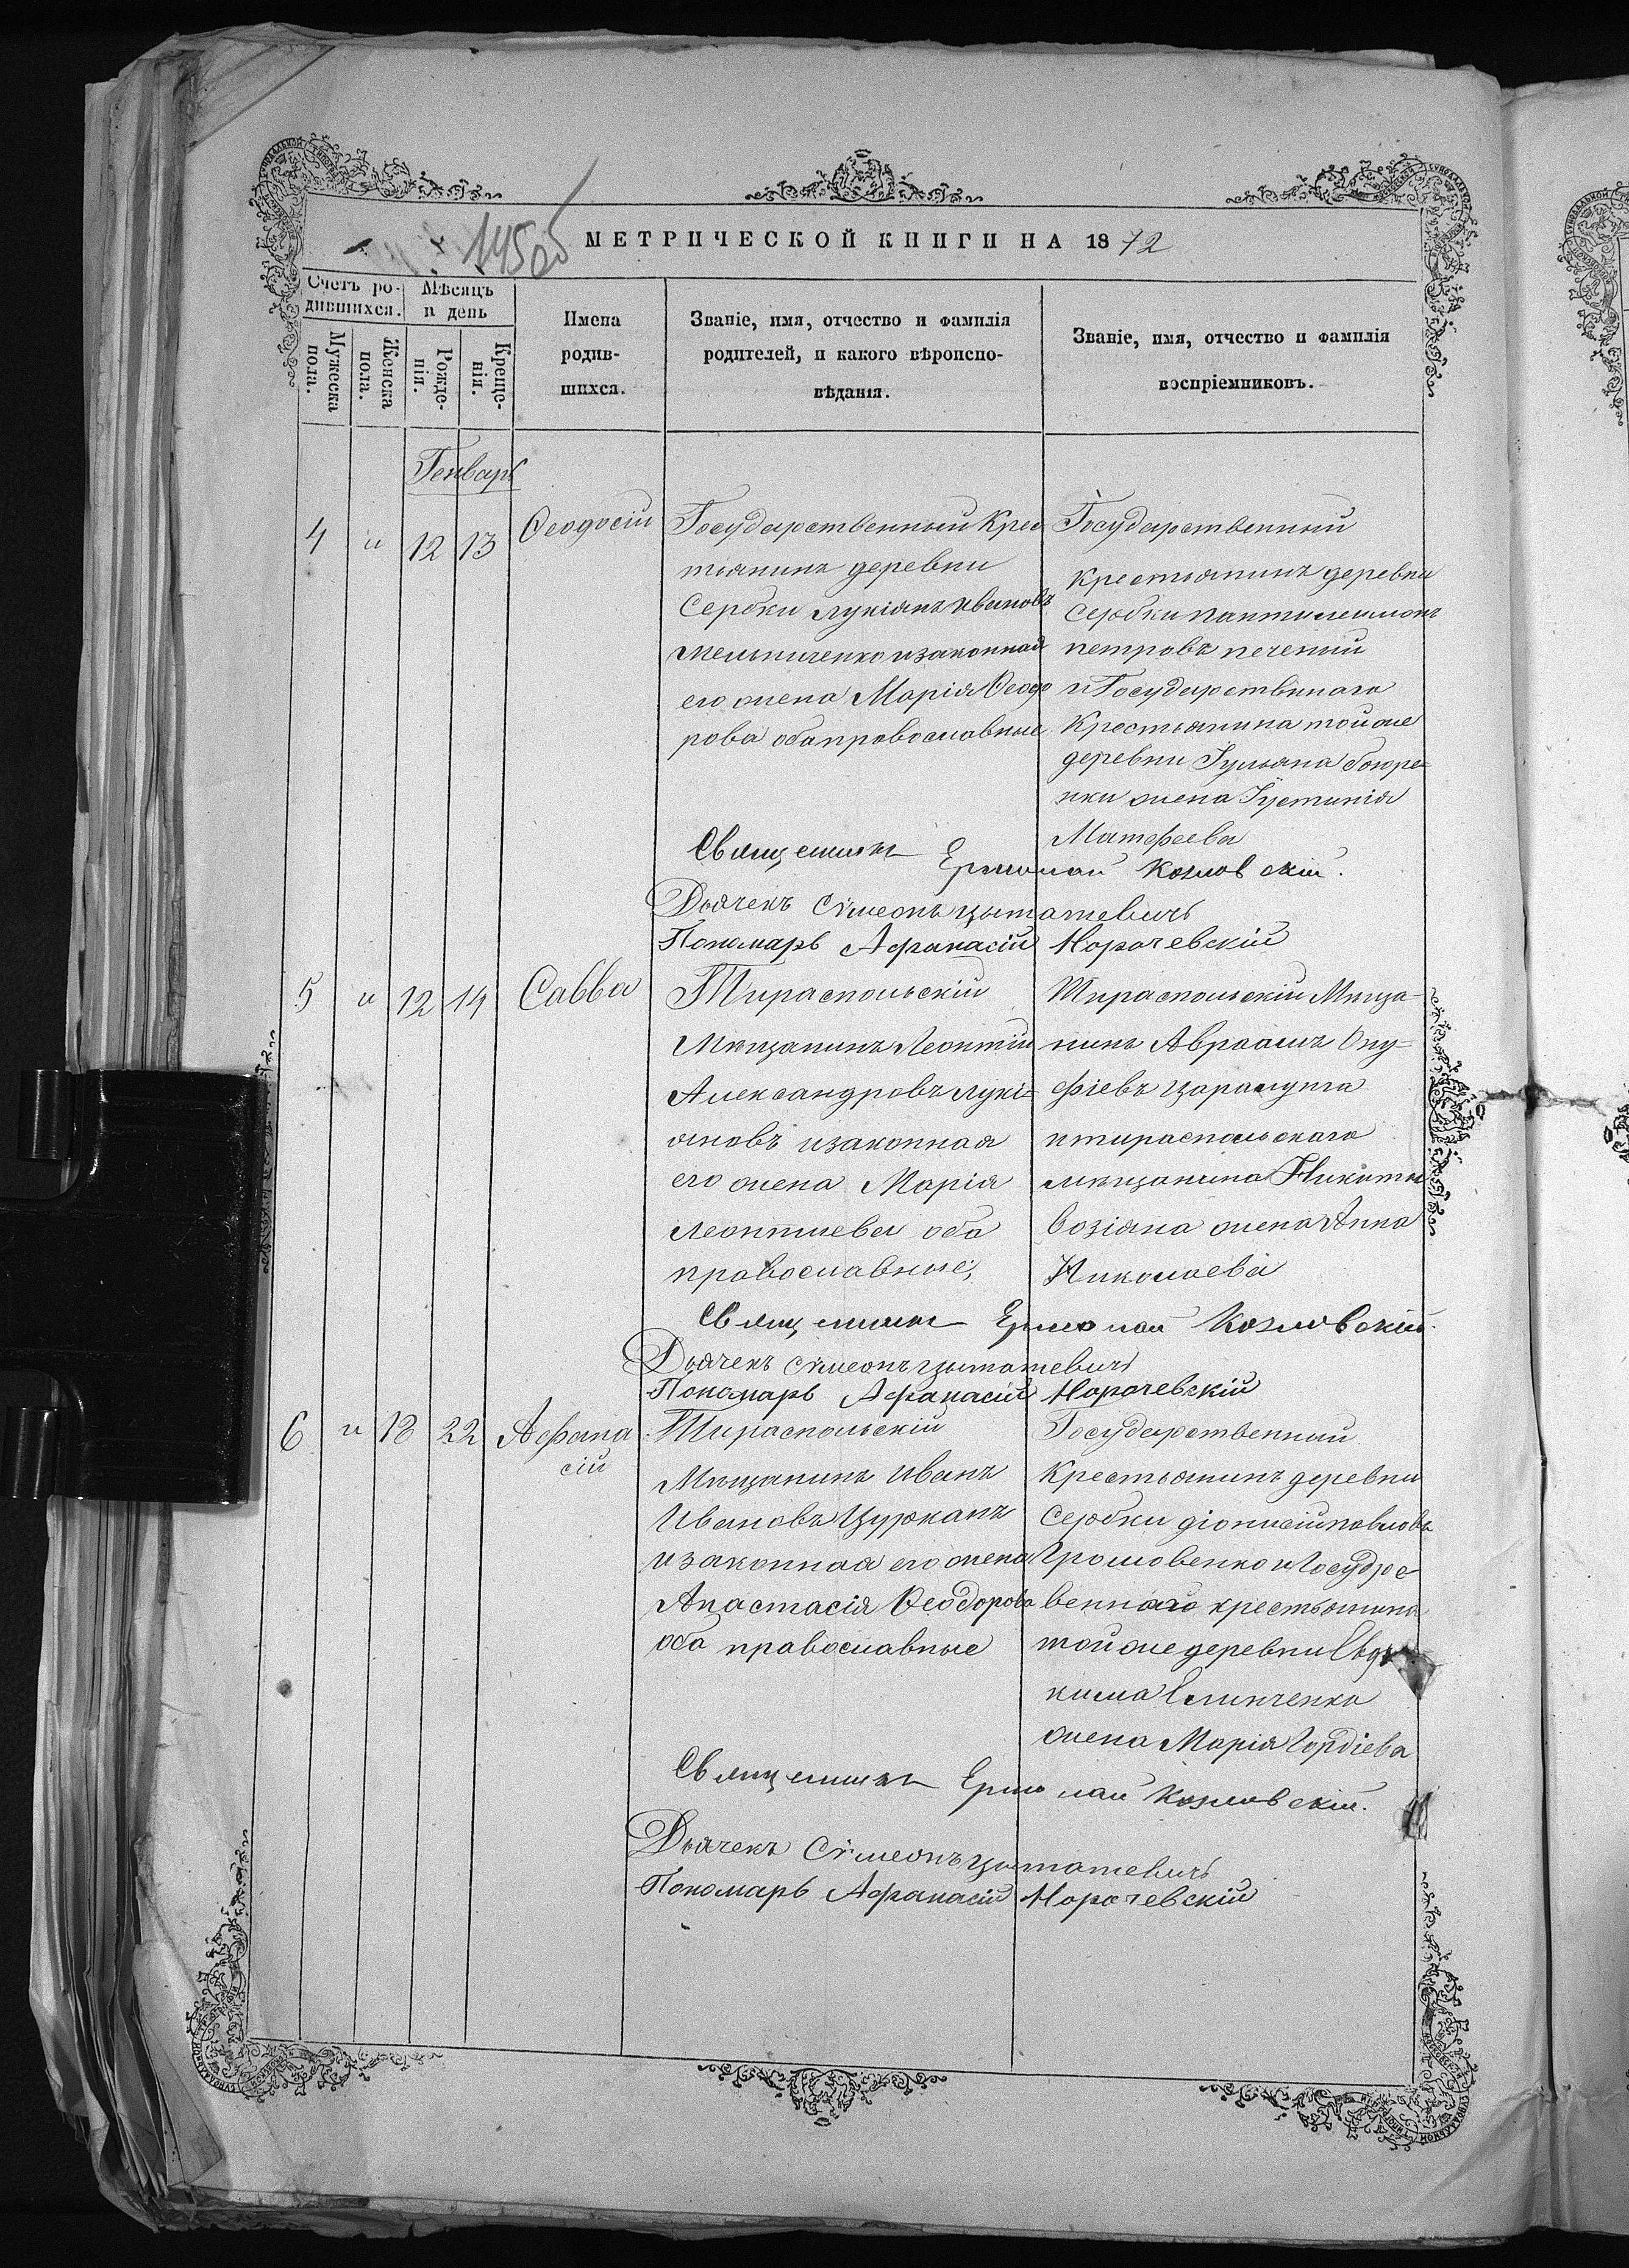 145 об
МЕТРИЧЕСКОЙ КНИГИ НА 1872
Счетъ ро-
дившихся.
Мѣсяцъ
и день
Мужеска
пола.
Женска
пола.
Рожде-
нія.
Креще-
нія.
Имена
родив-
шихся.
Званіе, имя, отчество и фамилія
родителей, и какого вѣроиспо-
вѣданія.
Званіе, имя, отчество и фамилія
воспріемниковъ.
Генварь
4 и 12 13 Ѳеодосій
Государственный Крес
тьянинъ деревни
Сербки Лукіянъ Ивановъ
Мельниченко и законная
его жена Марія Ѳеодо
рова оба православные
Государственный
крестьянинъ деревни
Сербки Пантилеимонъ
Петровъ Печений
и Государствннаго
Крестьянина той же
деревни Іульяна Боюре-
нки жена Іустинія
Матфеева
Священникъ Ермолай Козловскій.
Дьячекъ Сѵмеонъ Цытатевичъ
Пономарь Афанасій Норачевскій
5 и 12 14 Савва
Тираспольскій
Мѣщанинъ Леонтій
Александровъ Лукі-
яновъ и законная
его жена Марія
Леонтиева оба
православные,
Тираспольскій Мѣща-
нинъ Авраамъ Ону-
фріевъ Царалунга
и тираспольскаго
мѣщанина Никиты
Возіяна жена Анна
Николаева
Священникъ Ермолай Козловскій.
Дьячекъ Сѵмеонъ Цытатевичъ
Пономарь Афанасій Норачевскій
6 и 18 22 Афана
сій
Тираспольскій
Мѣщанинъ Иванъ
Ивановъ Цурканъ
и законная его жена
Анастасія Ѳеодорова
оба православные
Государственный
Крестьянинъ деревни
Сербки Діонисій Павловъ
Громовенко и Государс-
веннаго крестьянина
той же деревни Евдо
кима Климченка
жена Марія Гордіева
Священникъ Ермолай Козловскій.
Дьячекъ Сѵмеонъ Цытатевичъ
Пономарь Афанасій Норачевскій